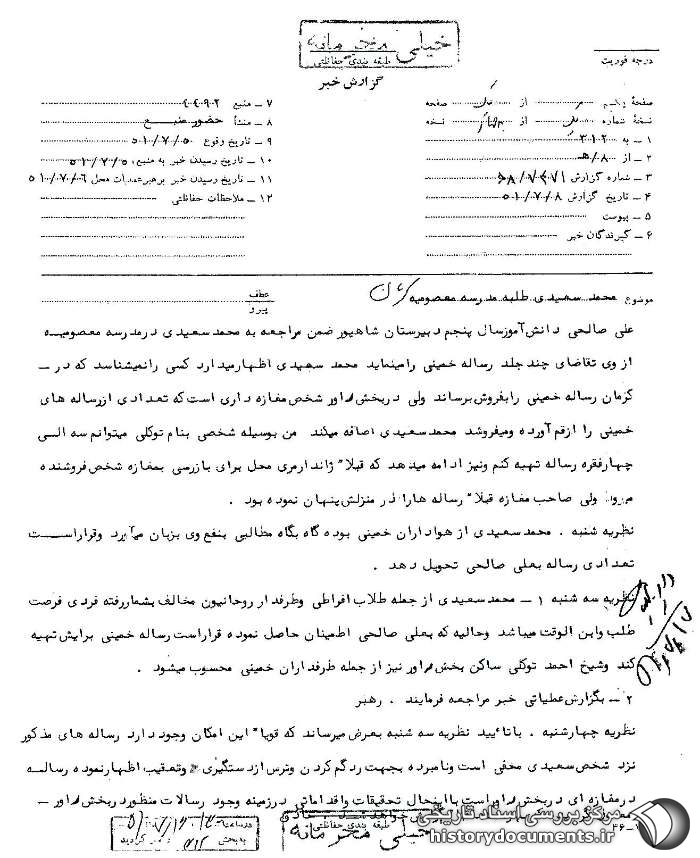 خیلی محرمانه
طبقه بندی حفاظتی
گزارش خبر
درجه فوریت
صفحه یکم از صفحه
نسخه شماره از نسخه
۱ ـ به ۳۱۲
۲ ـ از ۸/هـ
۳ ـ شماره گزارش
۴ ـ تاریخ گزارش ۵۱/۷/۸
۵ ـ پیوست
۶ ـ گیرندگان خبر
۷ ـ منبع ۴۴۹۲
۸ ـ منشأ حضور منبع
۹ ـ تاریخ وقوع ۵۱/۷/۵
۱۰ ـ تاریخ رسیدن خبر به منبع ۵۱/۷/۵
۱۱ ـ تاریخ رسیدن خبر برهبر عملیات محل ۵۱/۷/۶
۱۲ ـ ملاحظات حفاظتی
موضوع محمد سعیدی طلبه مدرسه معصومیه
عطف
پیرو
علی صالحی دانش آموز سال پنجم دبیرستان شاهپور ضمن مراجعه به محمد سعیدی در مدرسه معصومیه
از وی تقاضای چند جلد رساله خمینی را مینماید محمد سعیدی اظهار میدارد کسی را نمیشناسد که در ـ
کرمان رساله خمینی را بفروش برساند ولی در بخش راور شخص مغازه داری است که تعدادی از رساله های
خمینی را از قم آورده و میفروشد محمد سعیدی اضافه میکند من بوسیله شخصی بنام توکلی میتوانم سه الی
چهار فقره رساله تهیه کنم و نیز ادامه میدهد که قبلا" ژاندارمری محل برای بازرسی بمغازه شخص فروشنده
میرود ولی صاحب مغازه قبلا" رساله ها را در منزلش پنهان نموده بود .
نظریه شنبه . محمد سعیدی از هواداران خمینی بوده گاه بگاه مطالبی بنفع وی بزبان میآورد و قرار است
تعدادی رساله بعلی صالحی تحویل دهد .
نظریه سه شنبه ۱ ـ محمد سعیدی از جمله طلاب افراطی و طرفدار روحانیون مخالف بشمار رفته فردی فرصت
طلب و ابن الوقت میباشد و حالیه که بعلی صالحی اطمینان حاصل نموده قرار است رساله خمینی برایش تهیه
کند و شیخ احمد توکلی ساکن بخش راور نیز از جمله طرفداران خمینی محسوب میشود .
۲ ـ بگزارش عملیاتی خبر مراجعه فرمایند . رهبر
نظریه چهارشنبه . با تأیید نظریه سه شنبه بعرض میرساند که قویا" این امکان وجود دارد رساله های مذکور
نزد شخص سعیدی مخفی است و نامبرده بجهت رد گم کردن و ترس از دستگیری و تعقیب اظهار نموده رساله
در مغازه ای در بخش راور است با اینحال تحقیقات و اقداماتی در زمینه وجود رسالات منظور در بخش راور ـ
خواهد شد
خیلی محرمانه
طبقه بندی حفاظتی
مرکز بررسی اسناد تاریخی
historydocuments.ir